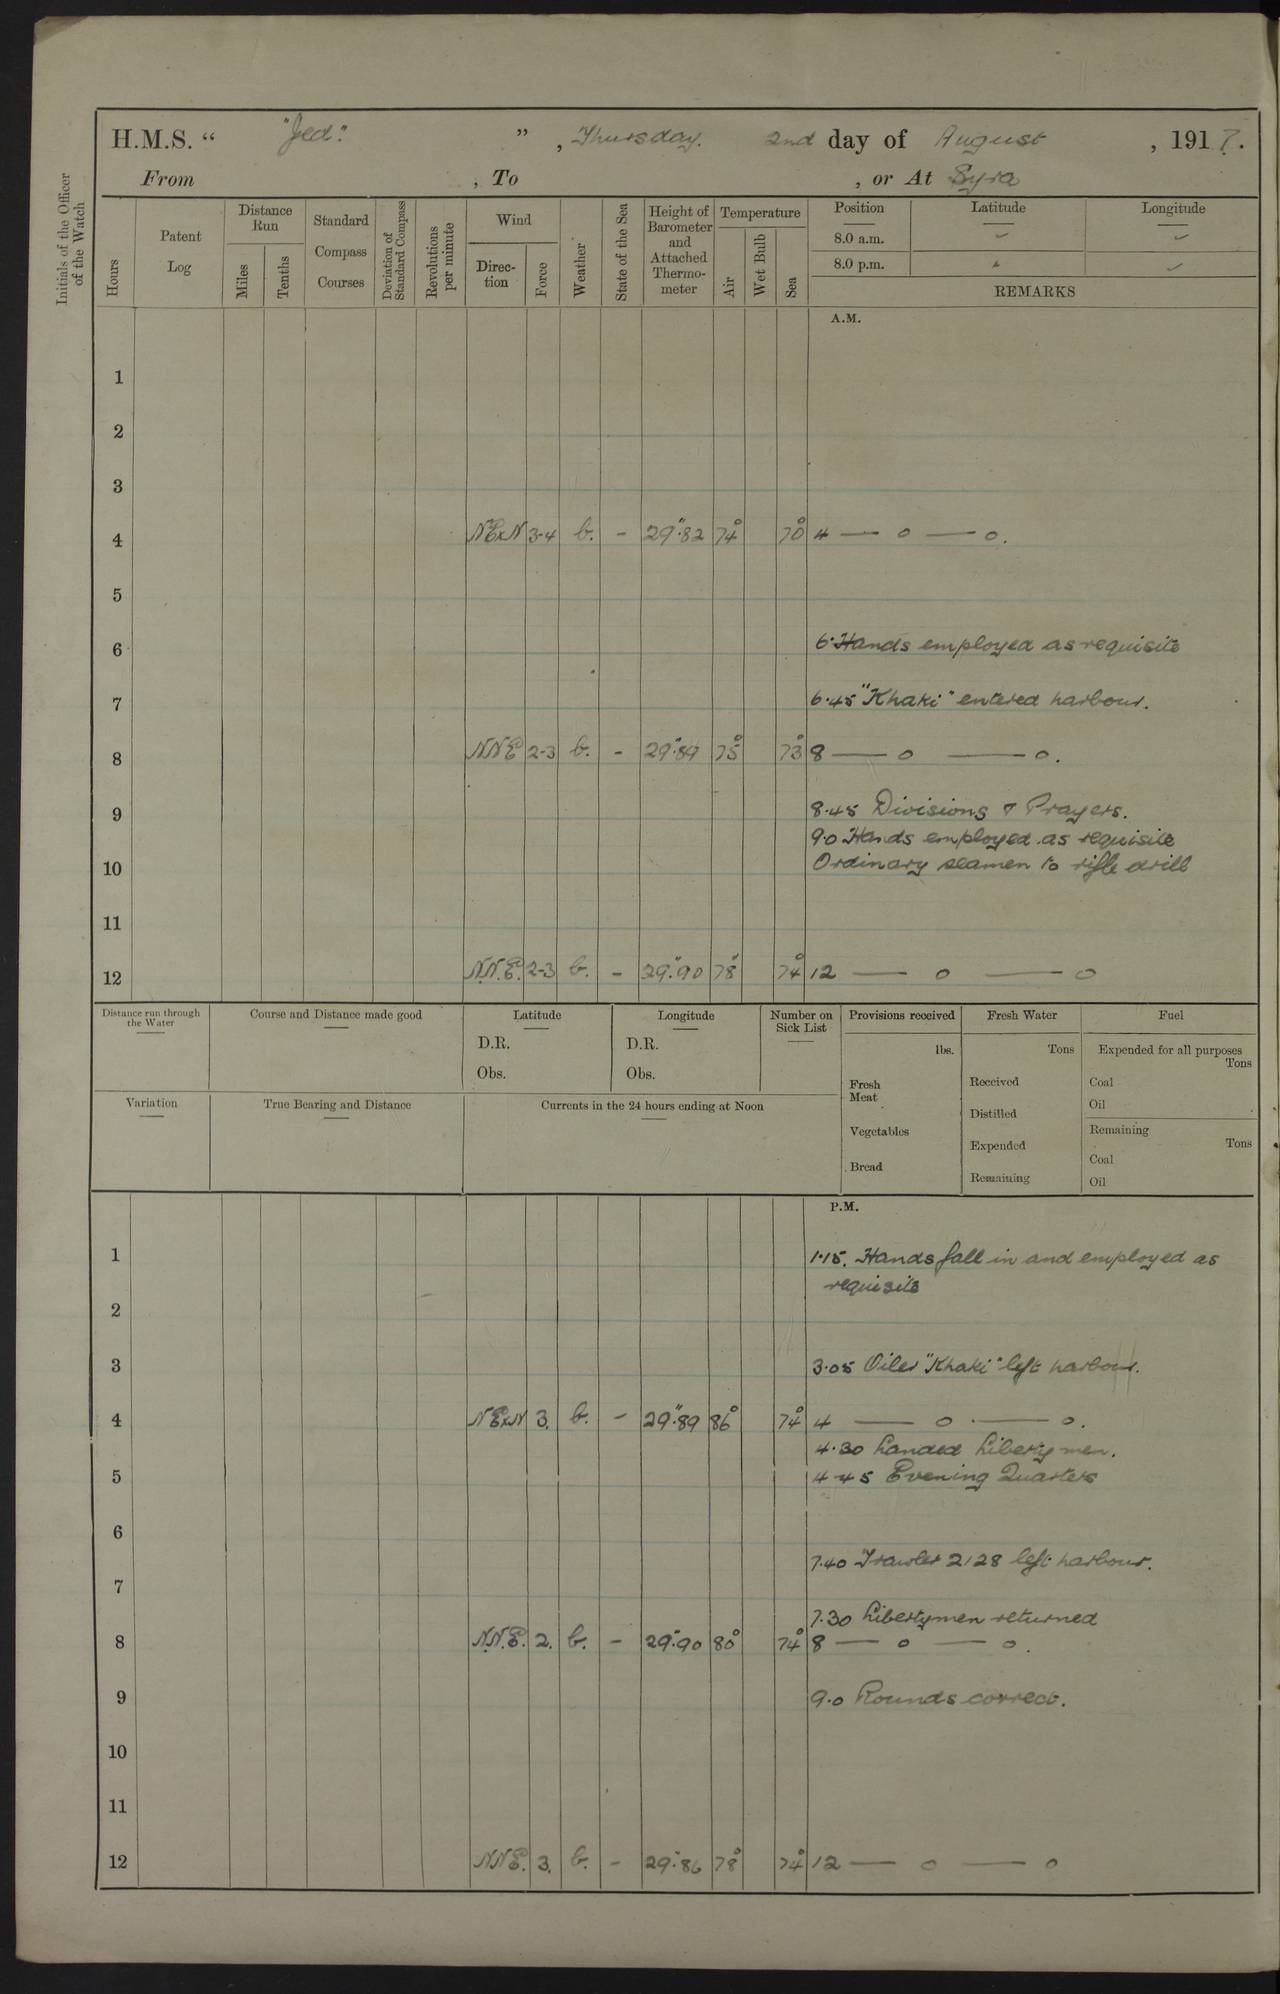 H.M.S. “ "Jed". ”, Thursday. 2nd day of August, 1917.
From , To , or At Syra
Initials of the Officer of the Watch
Hours
Patent Log
Distance Run
Miles
Tenths
Standard Compass Courses
Deviation of Standard Compass
Revolutions per minute
Wind
Direc-tion
Force
Weather
State of the Sea
Height of Barometer and Attached Thermo-meter
Temperature
Air
Wet Bulb
Sea
Position Latitude Longitude
8.0 a.m.
8.0 p.m.
REMARKS
A.M.
1
2
3
4 NExN 3-4 b. - 29".82 74° 70° 4 — o — o.
5
6 6. Hands employed as requisite
7 6.45 "Khaki" entered harbour.
8 NNE 2-3 b. - 29".89 75° 73° 8 — o — o.
9 8.45 Divisions & Prayers.
9.0 Hands employed as requisite
10 Ordinary seamen to rifle drill
11
12 N.N.E. 2-3 b. - 29".90 78° 74° 12 — o — o
Distance run through the Water
Course and Distance made good
Latitude
D.R.
Obs.
Longitude
D.R.
Obs.
Number on Sick List
Provisions received
lbs.
Fresh Meat
Vegetables
Bread
Fresh Water
Tons
Received
Distilled
Expended
Remaining
Fuel
Expended for all purposes
Tons
Coal
Oil
Remaining
Tons
Coal
Oil
Variation
True Bearing and Distance
Currents in the 24 hours ending at Noon
P.M.
1 1.15. Hands fall in and employed as
requisite
2
3 3.05 Oiler "Khaki" left harbour.
4 NExN 3. b. - 29".89 86° 74° 4 — o — o.
4.30 Landed Liberty men.
5 4.45 Evening Quarters
6
7.40 Trawler 2128 left harbour.
7
7.30 Libertymen returned
8 N.N.E. 2. b. - 29".90 80° 74° 8 — o — o.
9 9.0 Rounds correct.
10
11
12 NNE. 3. b. - 29".86 78° 74° 12 — o — o